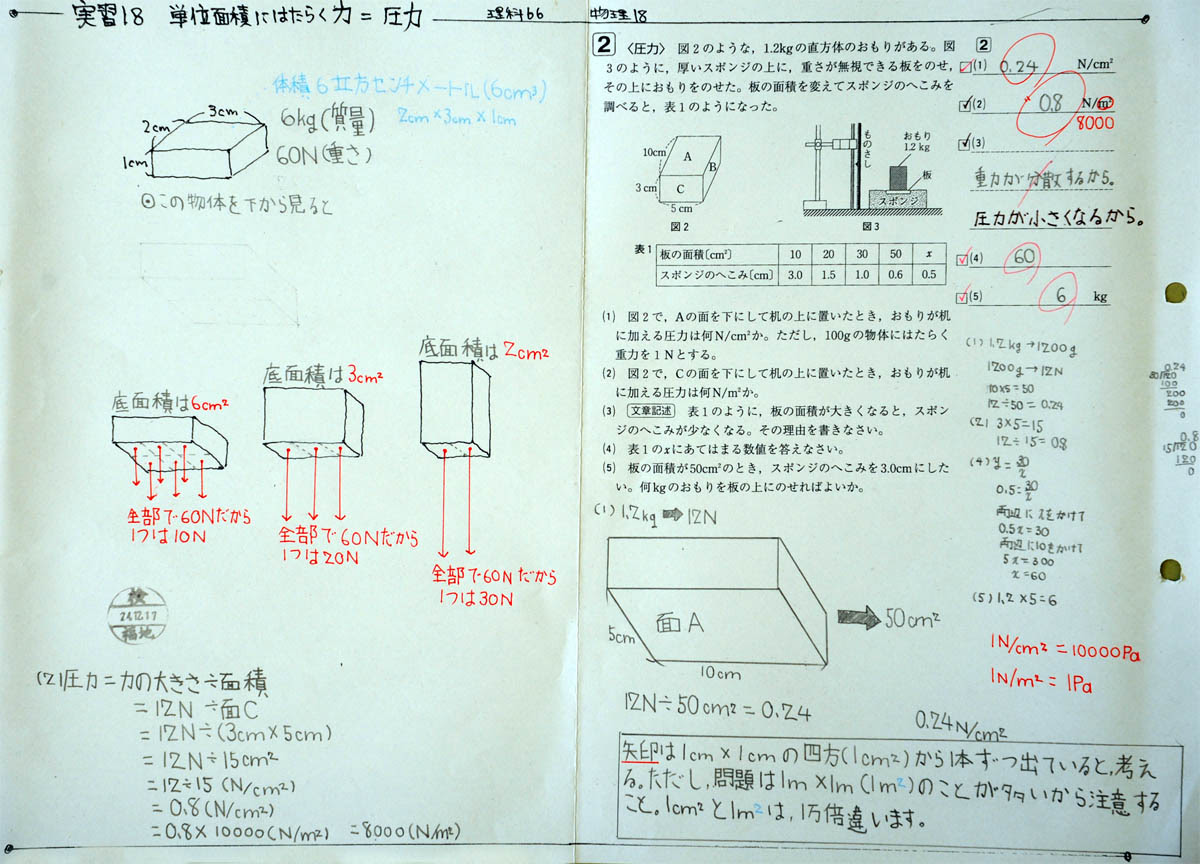 実習18 単位面積にはたらく力 = 圧力
理科66
物理18
体積6立方センチメートル(6cm³)
2cm×3cm×1cm
3cm
2cm
1cm
6kg(質量)
60N(重さ)
⊙この物体を下から見ると
底面積は6cm²
底面積は3cm²
底面積は2cm²
全部で60Nだから
1つは10N
全部で60Nだから
1つは20N
全部で60Nだから
1つは30N
検
24.12.17
福地
(2)圧力=力の大きさ÷面積
=12N÷面C
=12N÷(3cm×5cm)
=12N÷15cm²
=12÷15(N/cm²)
=0.8(N/cm²)
=0.8×10000(N/m²) =8000(N/m²)
2 〈圧力〉 図2のような，1.2kgの直方体のおもりがある。図
3のように，厚いスポンジの上に，重さが無視できる板をのせ，
その上におもりをのせた。板の面積を変えてスポンジのへこみを
調べると，表1のようになった。
10cm
A
B
3cm
C
5cm
図2
ものさし
おもり
1.2kg
板
スポンジ
図3
表1
板の面積〔cm²〕 10 20 30 50 x
スポンジのへこみ〔cm〕 3.0 1.5 1.0 0.6 0.5
(1) 図2で，Aの面を下にして机の上に置いたとき，おもりが机
に加える圧力は何N/cm²か。ただし，100gの物体にはたらく
重力を1Nとする。
(2) 図2で，Cの面を下にして机の上に置いたとき，おもりが机
に加える圧力は何N/m²か。
(3) 文章記述 表1のように，板の面積が大きくなると，スポン
ジのへこみが少なくなる。その理由を書きなさい。
(4) 表1のxにあてはまる数値を答えなさい。
(5) 板の面積が50cm²のとき，スポンジのへこみを3.0cmにした
い。何kgのおもりを板の上にのせればよいか。
(1) 1.2kg 12N
面A
5cm
10cm
50cm²
12N÷50cm²=0.24
0.24N/cm²
矢印は1cm×1cmの四方(1cm²)から1本ずつ出ていると，考え
る。ただし，問題は1m×1m(1m²)のことが多いから注意する
こと。1cm²と1m²は，1万倍違います。
2
(1) 0.24 N/cm²
(2) 0.8 N/m²
8000
(3)
重力が分散するから。
圧力が小さくなるから。
(4) 60
(5) 6 kg
(1) 1.2kg→1200g
1200g→12N
10×5=50
12÷50=0.24
(2) 3×5=15
12÷15=0.8
(4) y=30/x
0.5=30/x
両辺にxをかけて
0.5x=30
両辺に10をかけて
5x=300
x=60
(5) 1.2×5=6
1N/cm²=10000Pa
1N/m²=1Pa
0.24
100
200
200
0
0.8
15)120
120
0